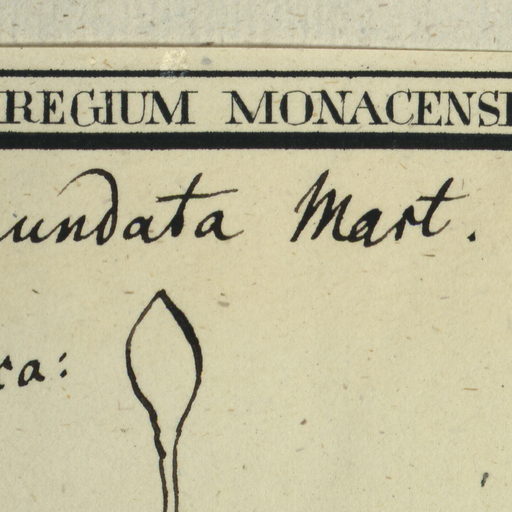 REGIUM MONACENSI
undata Mart.
ca: